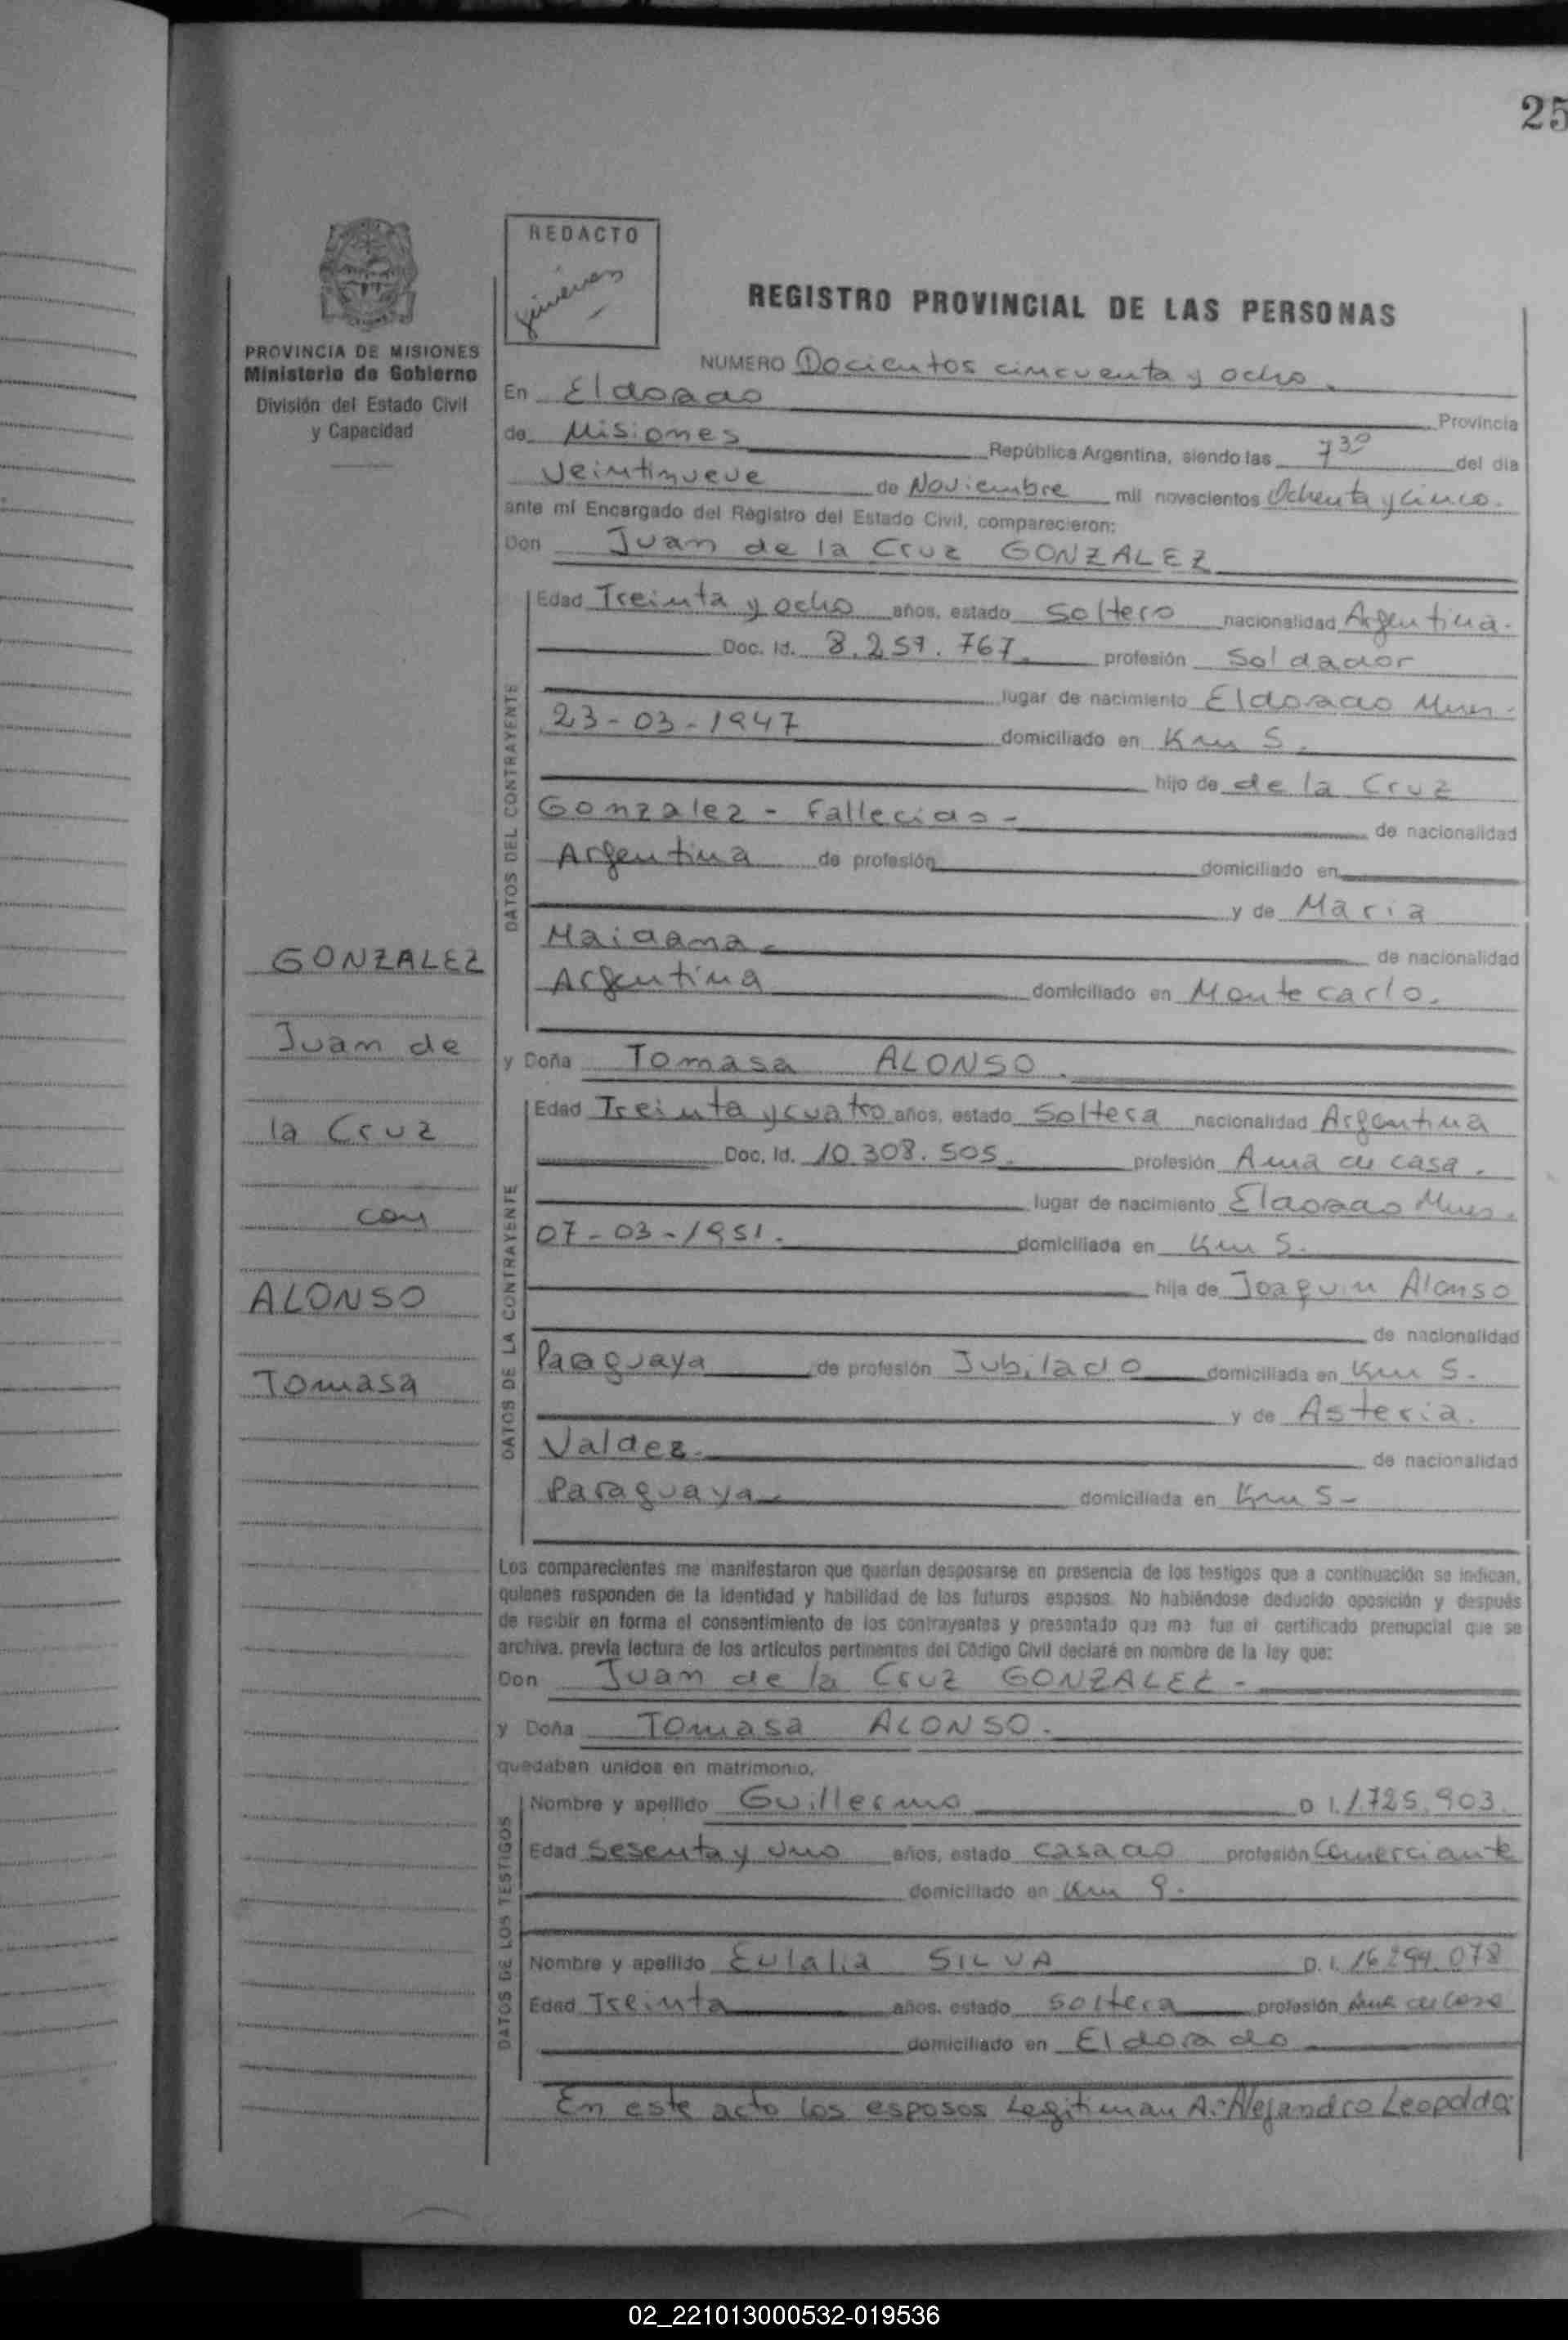 25
REDACTO
REGISTRO PROVINCIAL DE LAS PERSONAS
PROVINCIA DE MISIONES
Ministerio de Gobierno
División del Estado Civil
y Capacidad
NUMERO Docientos cincuenta y ocho.
En Eldorado Provincia
de Misiones República Argentina, siendo las 7 30 del día
Veintinueve de Noviembre mil novecientos Ochenta y cinco.
ante mí Encargado del Registro del Estado Civil, comparecieron:
Don Juan de la Cruz GONZALEZ
DATOS DEL CONTRAYENTE
Edad Treinta y ocho años, estado Soltero nacionalidad Argentina.
Doc. Id. 8.257.767. profesión Soldador
lugar de nacimiento Eldorado Mnes.
23-03-1947 domiciliado en Km 5.
hijo de de la Cruz
Gonzalez - Fallecido - de nacionalidad
Argentina de profesión domiciliado en
y de Maria
Maidana. de nacionalidad
Argentina domiciliado en Montecarlo.
GONZALEZ
Juan de
la Cruz
con
ALONSO
Tomasa
y Doña Tomasa ALONSO.
DATOS DE LA CONTRAYENTE
Edad Treinta y cuatro años, estado Soltera nacionalidad Argentina
Doc. Id. 10.308.505. profesión Ama de casa.
lugar de nacimiento Eldorado Mnes.
07-03-1951. domiciliada en Km 5.
hija de Joaquin Alonso
de nacionalidad
Paraguaya de profesión Jubilado domiciliada en Km 5.
y de Asteria.
Valdez. de nacionalidad
Paraguaya domiciliada en Km 5-
Los comparecientes me manifestaron que querían desposarse en presencia de los testigos que a continuación se indican,
quienes responden de la identidad y habilidad de los futuros esposos. No habiéndose deducido oposición y después
de recibir en forma el consentimiento de los contrayentes y presentado que me fue el certificado prenupcial que se
archiva. previa lectura de los artículos pertinentes del Código Civil declaré en nombre de la ley que:
Don Juan de la Cruz GONZALEZ -
y Doña Tomasa ALONSO.
quedaban unidos en matrimonio.
DATOS DE LOS TESTIGOS
Nombre y apellido Guillermo D. I. 1.725.903.
Edad Sesenta y uno años, estado Casado profesión Comerciante
domiciliado en Km 9.
Nombre y apellido Eulalia SILVA D. I. 16.294.078
Edad Treinta años, estado soltera profesión Ama de Casa
domiciliado en Eldorado
En este acto los esposos Legitiman A:-Alejandro Leopoldo;
02_221013000532-019536